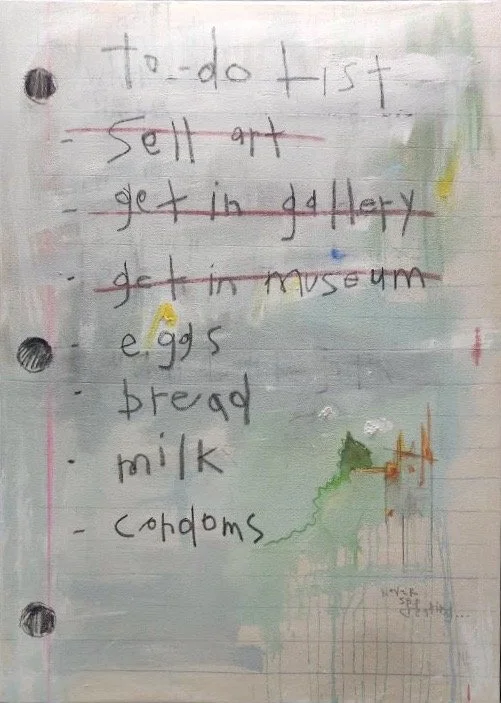 to-do list
- sell art
- get in gallery
- get in museum
- eggs
- bread
- milk
- condoms